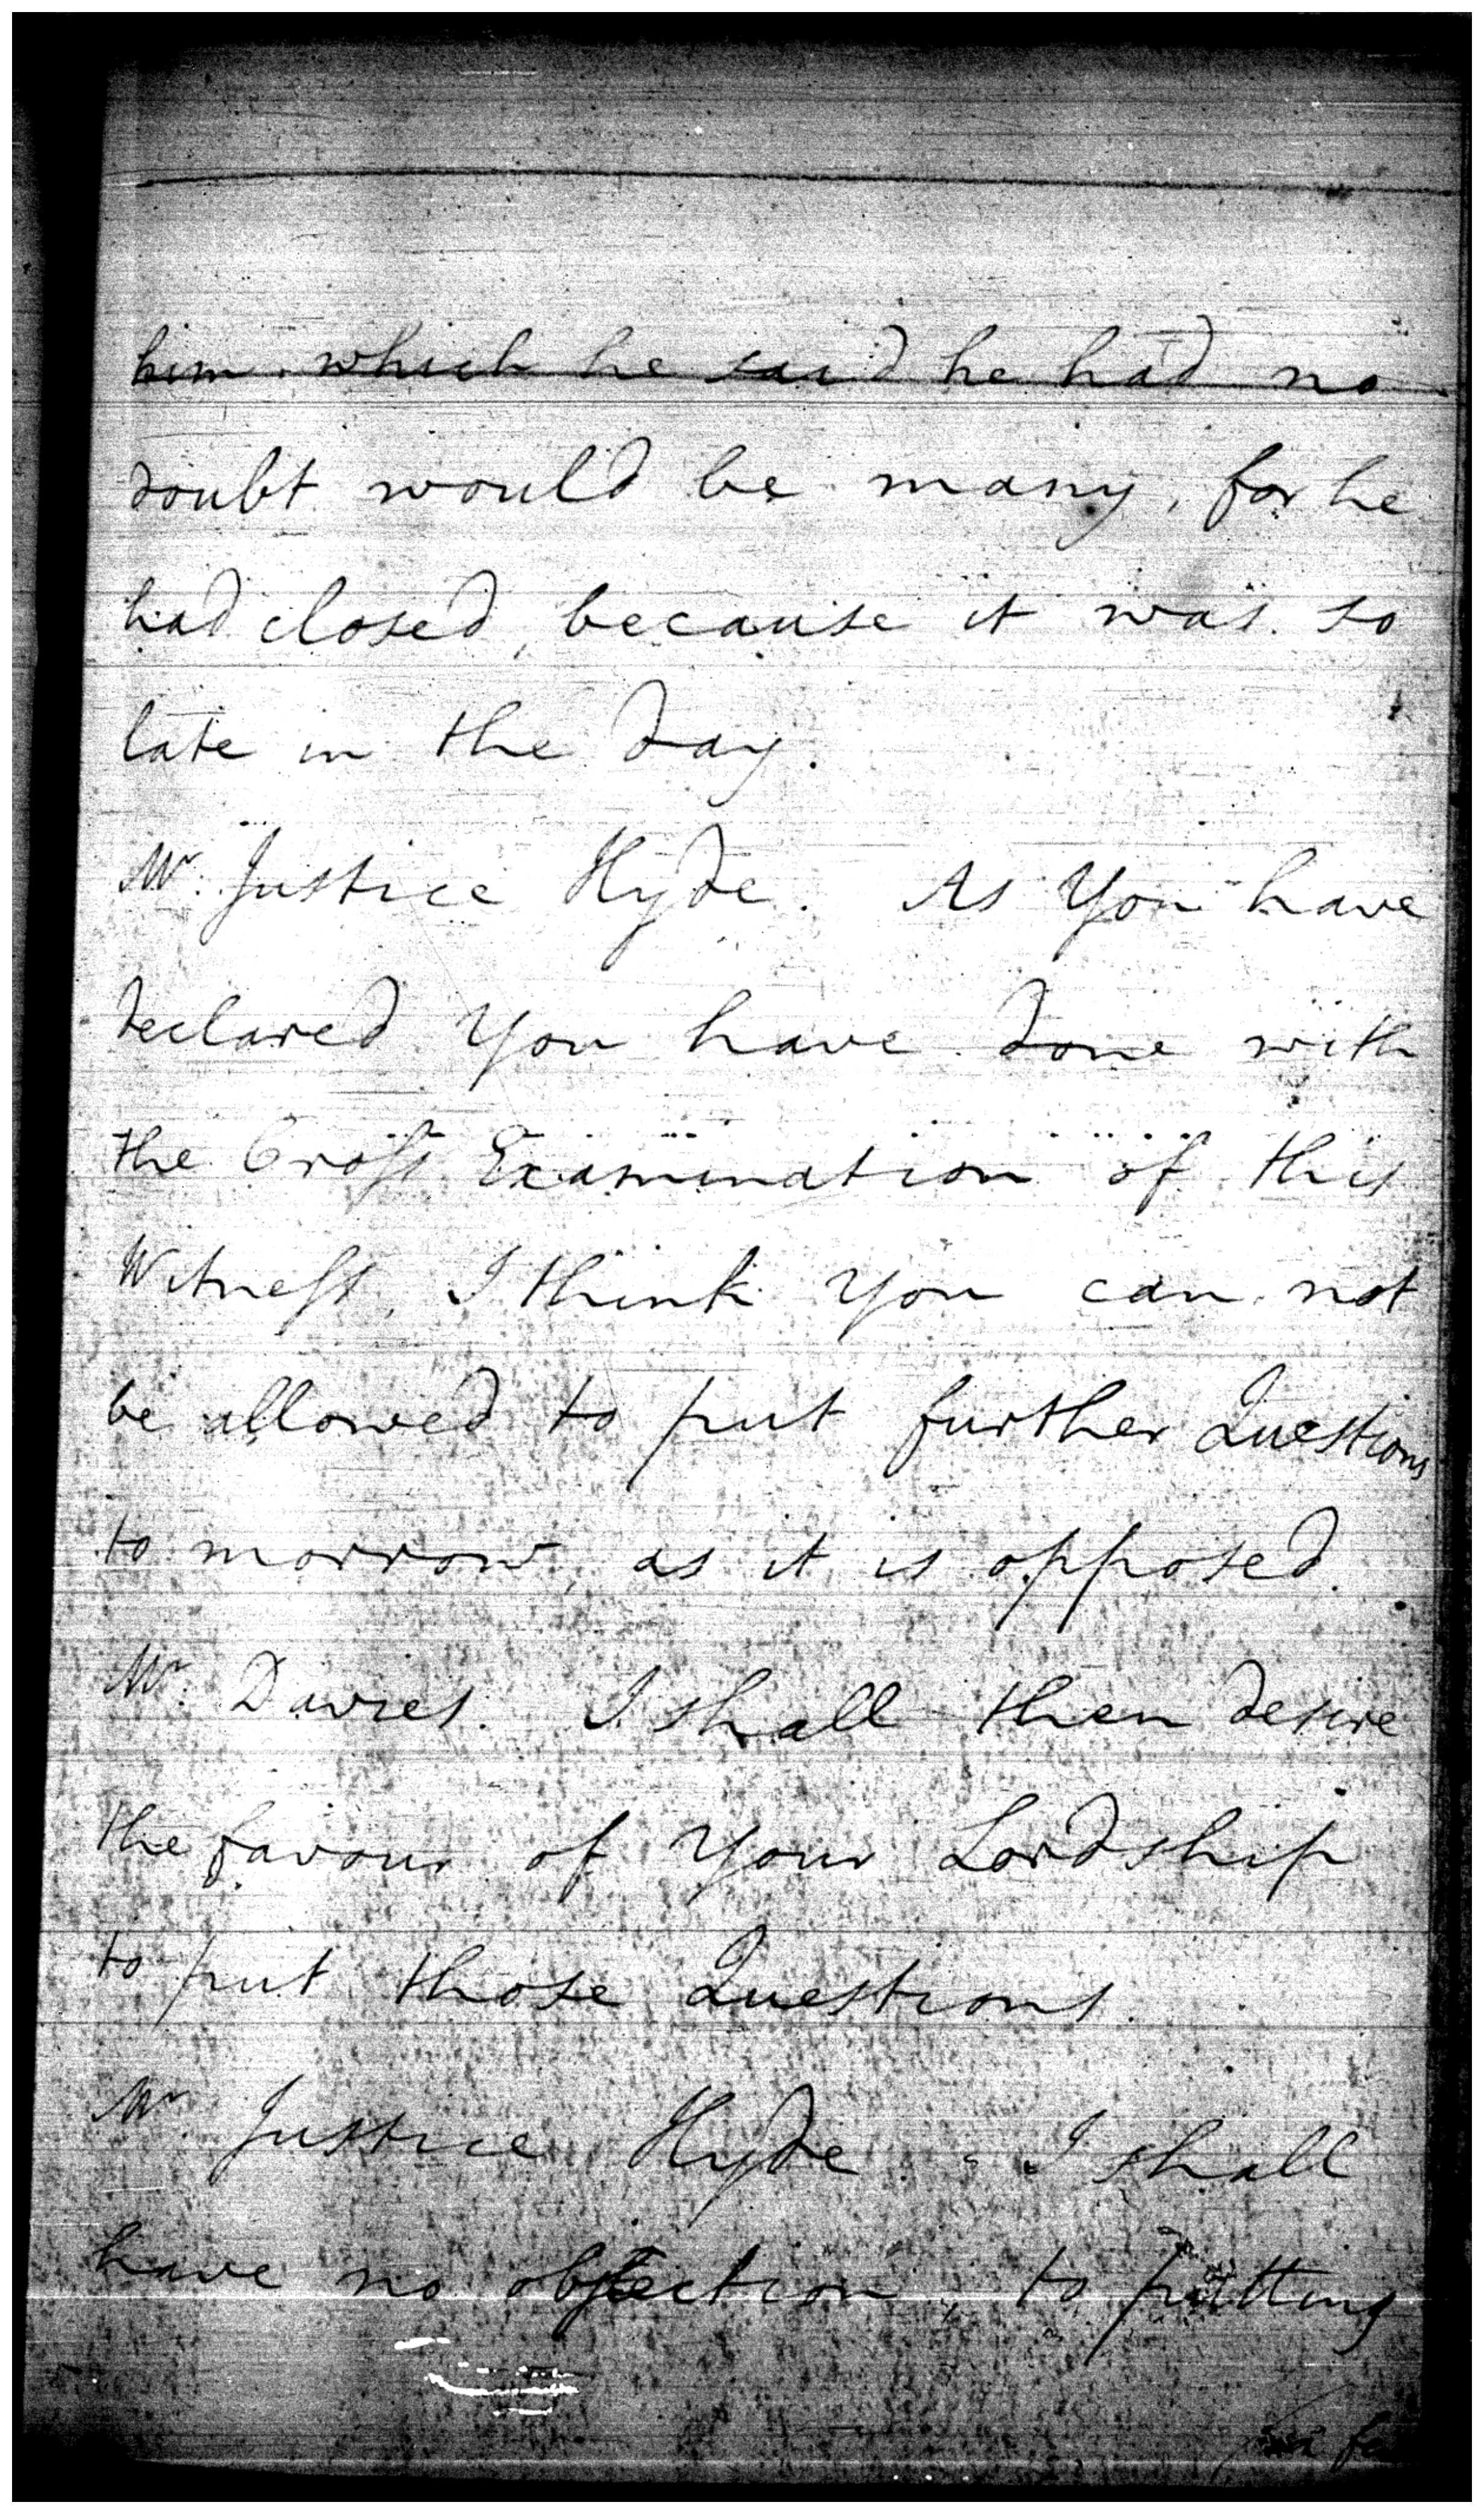 him. which he said he had no
doubt would be many, for he
had closed, because it was so
late in the day.
Mr. Justice Hyde. As You have
declared You have done with
the Cross Examination of this
Witness, I think You can not
be allowed to put further Questions
to morrow, as it is opposed.
Mr. Davies. I shall then desire
the favour of Your Lordship
to put those Questions.
Mr. Justice Hyde. I shall
have no objection, to putting